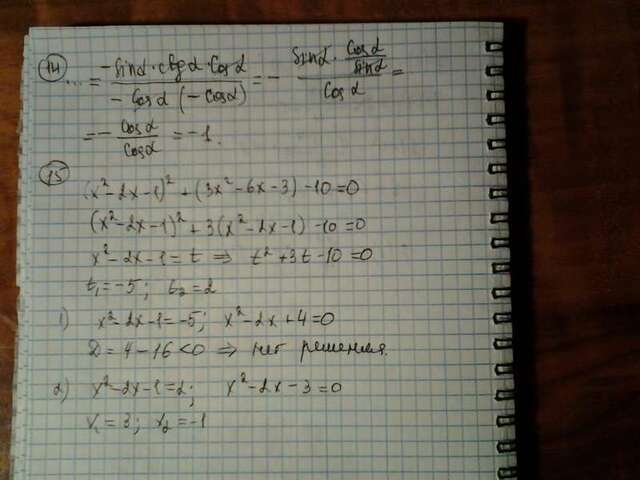 14 ... = -sinα·ctgα·cosα / -cosα(-cosα) = - sinα· cosα/sinα / cosα =
= - cosα/cosα = -1.
15 (x²-2x-1)² + (3x²-6x-3) -10=0
(x²-2x-1)² + 3(x²-2x-1) -10=0
x²-2x-1=t ⇒ t²+3t-10=0
t₁=-5; t₂=2
1) x²-2x-1=-5; x²-2x+4=0
D=4-16<0 ⇒ нет решения.
2) x²-2x-1=2; x²-2x-3=0
x₁=3; x₂=-1